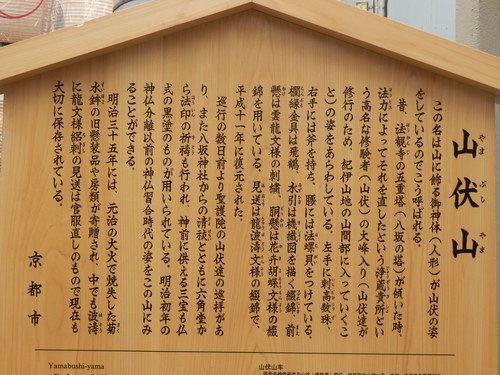 山伏山
やまぶしやま
この名は山に飾る御神体（人形）が山伏の姿
をしているのでこう呼ばれる。
昔、法観寺の五重塔（八坂の塔）が傾いた時、
法力によってそれを直したという浄蔵貴所とい
う高名な修験者（山伏）の大峰入り（山伏達が
修行のため、紀伊山地の山間部に入っていくこ
と）の姿をあらわしている。左手に刺高数珠、
右手には斧を持ち、腰には法螺貝をつけている。
欄縁金具は飛鶴、水引は機織図を描く綴錦、前
懸は雲龍文様の刺繍、胴懸は花卉胡蝶文様の綴
錦を用いている。見送は龍波濤文様の綴錦で、
平成十一年に復元された。
巡行の数日前より聖護院の山伏達の巡拝があ
り、また八坂神社からの清祓とともに六角堂か
ら法印の祈祷も行われ、神前に供える三宝も仏
式の黒塗のものが用いられている。明治初年の
神仏分離以前の神仏習合時代の姿をこの山にみ
ることができる。
明治三十五年には、元治の大火で焼失した菊
水鉾の旧懸装品や房類が寄贈され、中でも波濤
に龍文様絽刺の見送は官服直しのもので現在も
大切に保存されている。
京都市
Yamabushi-yama
山伏山車